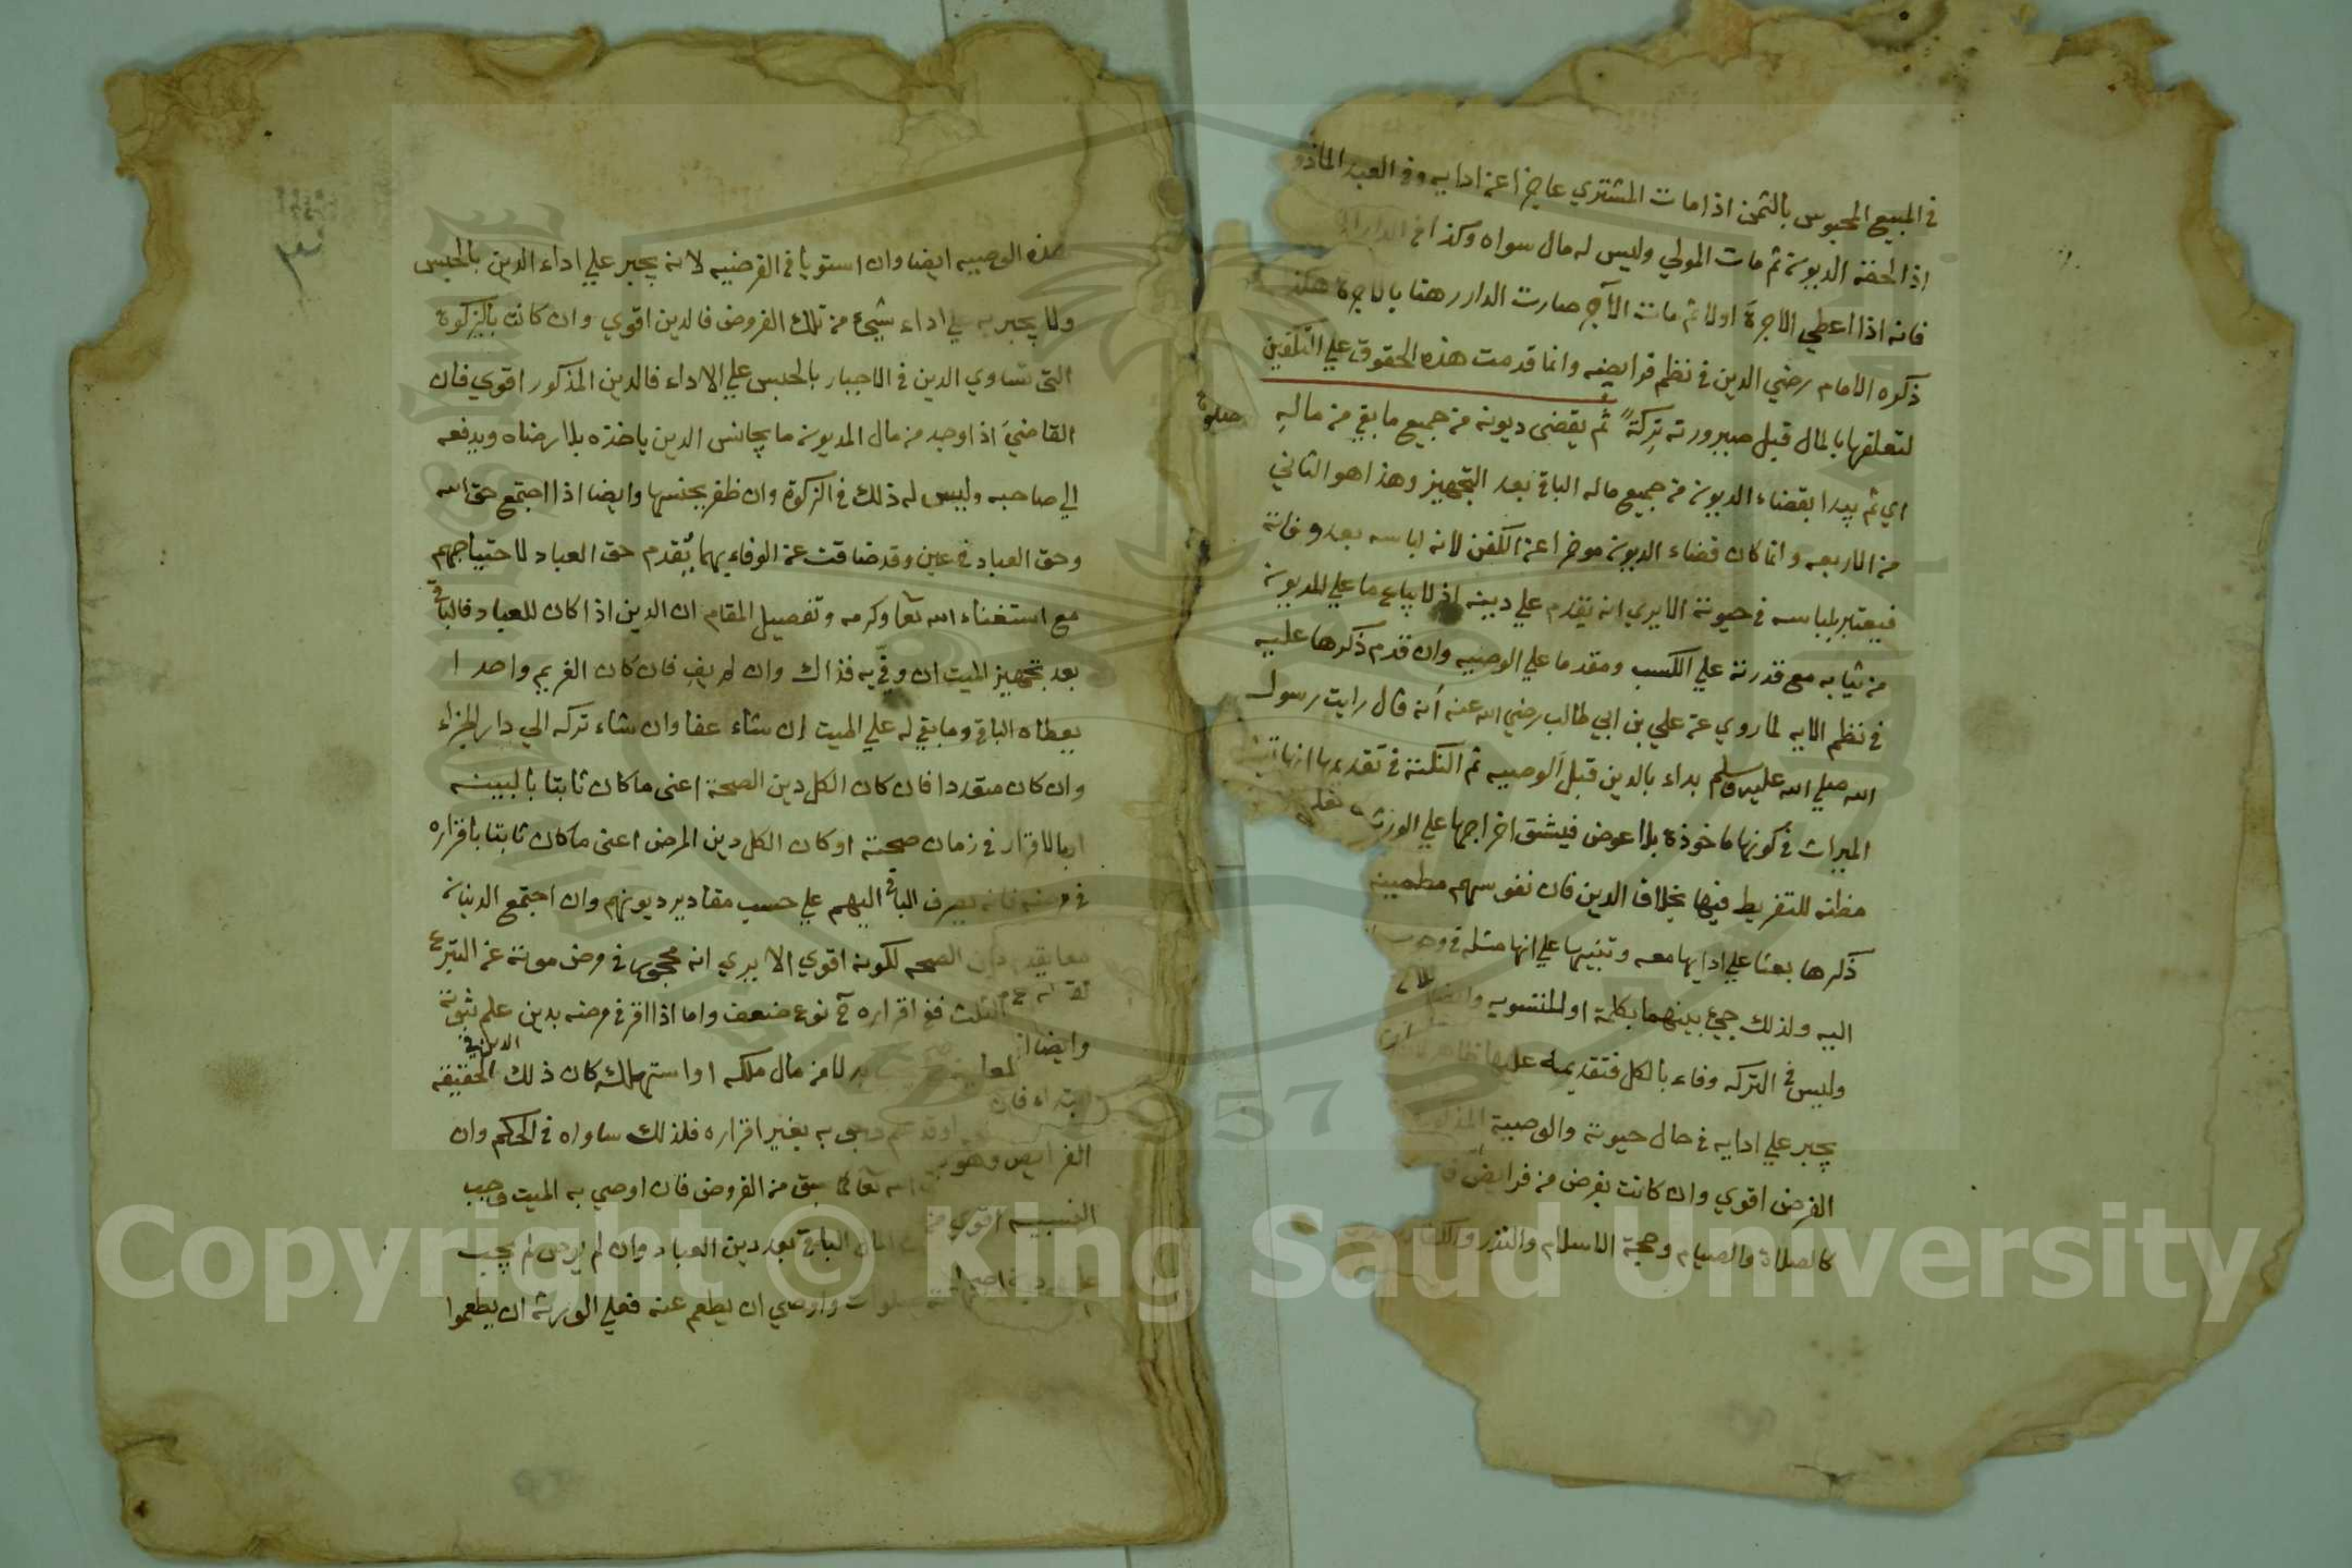 في المبيع المحبوس بالثمن اذا مات المشتري عاجزا عن ادايه وفي العبد الماذو
اذا لحقه الديون ثم مات المولي وليس له مال سواه وكذا في الدار
فانه اذا اعطي الاجرة اولا ثم مات الآجر صارت الدار رهنا بالاجرة هكذ
ذكره الامام رضي الدين في نظم فرايضه وانما قدمت هذه الحقوق علي التكفين
لتعلقها بالمال قبل صيرورته تركة ثم يقضى ديونه من جميع ما بقي من ماله
اي ثم يبدا بقضاء الديون من جميع ماله الباقي بعد التجهيز وهذا هو الثاني
من الاربعه وانما كان قضاء الديون موخرا عن الكفن لانه لباسه بعد وفاته
فيعتبر بلباسه في حيوته الا يري انه يقدم علي دينه اذ لا يباع ما علي المديون
من ثيابه مع قدرته علي الكسب ومقدما علي الوصيه وان قدم ذكرها عليه
في نظم الايه لما روي عن علي بن ابي طالب رضي الله عنه انه قال رايت رسول
الله صلي الله عليه وسلم بداء بالدين قبل الوصيه ثم النكتة في تقديمها انها
الميراث في كونها ماخوذة بلا عوض فيشق اخراجها علي الورثه
مظنه للتفريط فيها بخلاف الدين فان نفوسهم مطمينه
ذكرها بعثا علي ادايها معه وتنبيها علي انها مثله في
اليه ولذلك جيء بينهما بكلمة او للتسويه
وليس في التركه وفاء بالكل فتقديمه عليها ظاهر
يجبر علي ادايه في حال حيوته والوصية
الفرض اقوي وان كانت بفرض من فرايض
كالصلاة والصيام وحجة الاسلام والنذر
هذه الوصيه ايضا وان استويا في الفرضيه لانه يجبر علي اداء الدين بالحبس
ولا يجبر علي اداء شيء من تلك الفروض فالدين اقوي وان كانت بالزكوة
التي تساوي الدين في الاجبار بالحبس علي الاداء فالدين المذكور اقوي فان
القاضي اذا وجد من مال المديون ما يجانس الدين ياخذه بلا رضاه ويدفعه
الي صاحبه وليس له ذلك في الزكوة وان ظفر بجنسها وايضا اذا اجتمع حق الله
وحق العباد في عين وقد ضاقت عن الوفاء بهما يقدم حق العباد لاحتياجهم
مع استغناء الله تعا وكرمه وتفصيل المقام ان الدين اذا كان للعباد فالباقي
بعد تجهيز الميت ان وفي به فذاك وان لم يف فان كان الغريم واحدا
يعطاه الباقي وما بقي له علي الميت ان شاء عفا وان شاء تركه الي دار الجزاء
وان كان متعددا فان كان الكل دين الصحة اعني ما كان ثابتا بالبينه
او بالاقرار في زمان صحته او كان الكل دين المرض اعني ما كان ثابتا باقراره
في مرضه فانه يصرف الباقي اليهم علي حسب مقادير ديونهم وان اجتمع الدينان
معا يقدم دين الصحه لكونه اقوي الا يري انه محجور في مرض موته عن التبرع
الثلث ففي اقراره ح نوع ضعف واما اذا اقر في مرضه بدين علم ثبوته
بدلا من مال ملكه او استهلك كان ذلك الدين في الحقيقه
به بغير اقراره فلذلك ساواه في الحكم وان
سبق من الفروض فان اوصي به الميت وجب
المال الباقي بعد دين العباد وان لم يوص لم يجب
واوصي ان يطعم عنه فعلي الورثه ان يطعموا